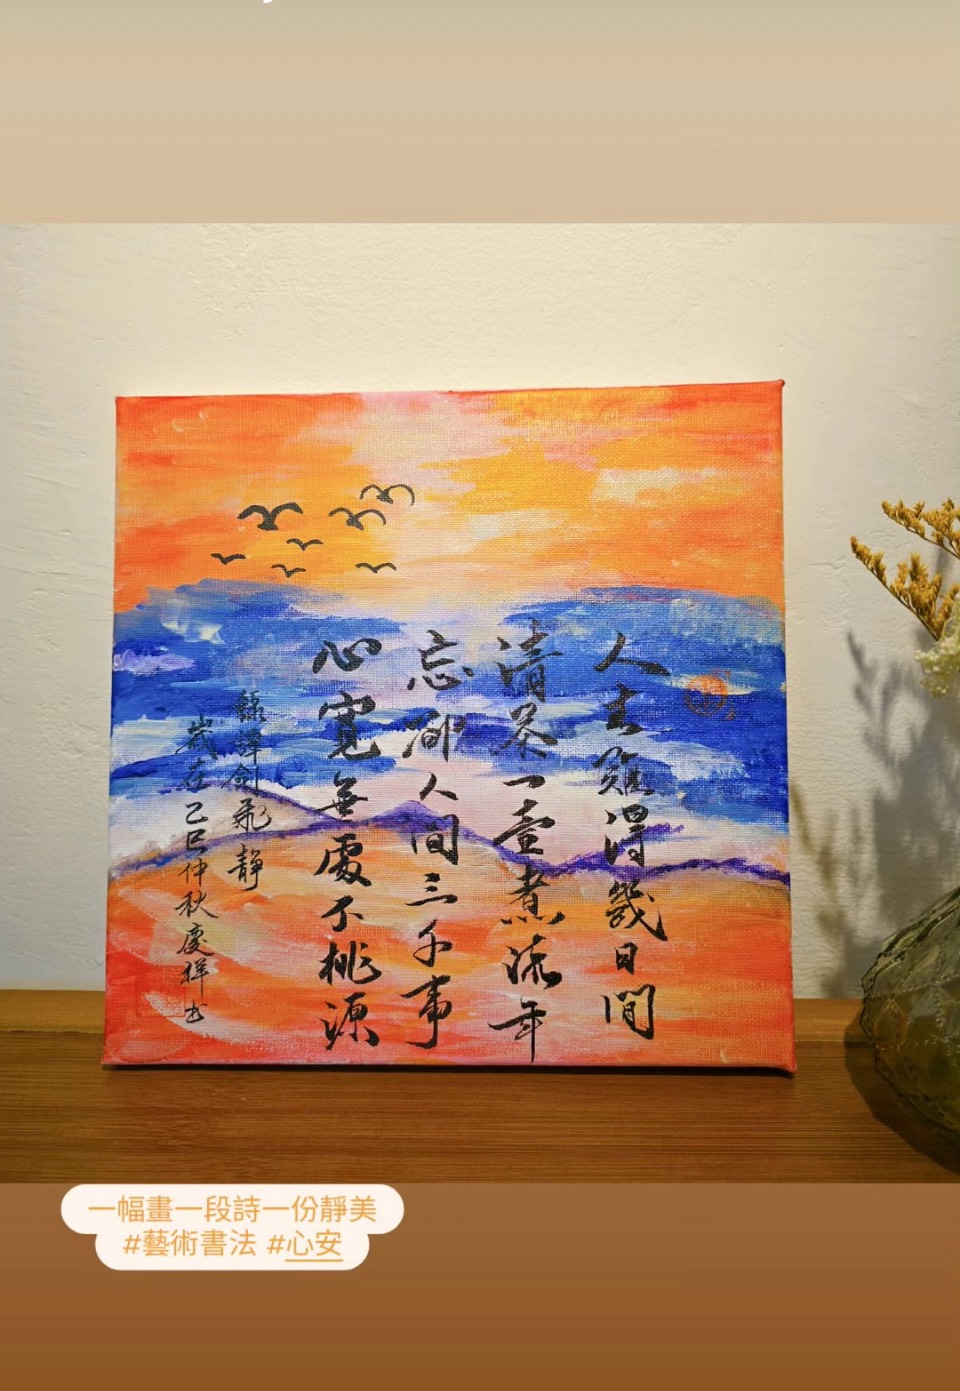 人生難得幾日閒
清茶一壺煮流年
忘卻人間三千事
心寬無處不桃源
錄譚劍飛靜
歲在乙巳仲秋慶祥书
一幅畫一段詩一份靜美
#藝術書法 #心安